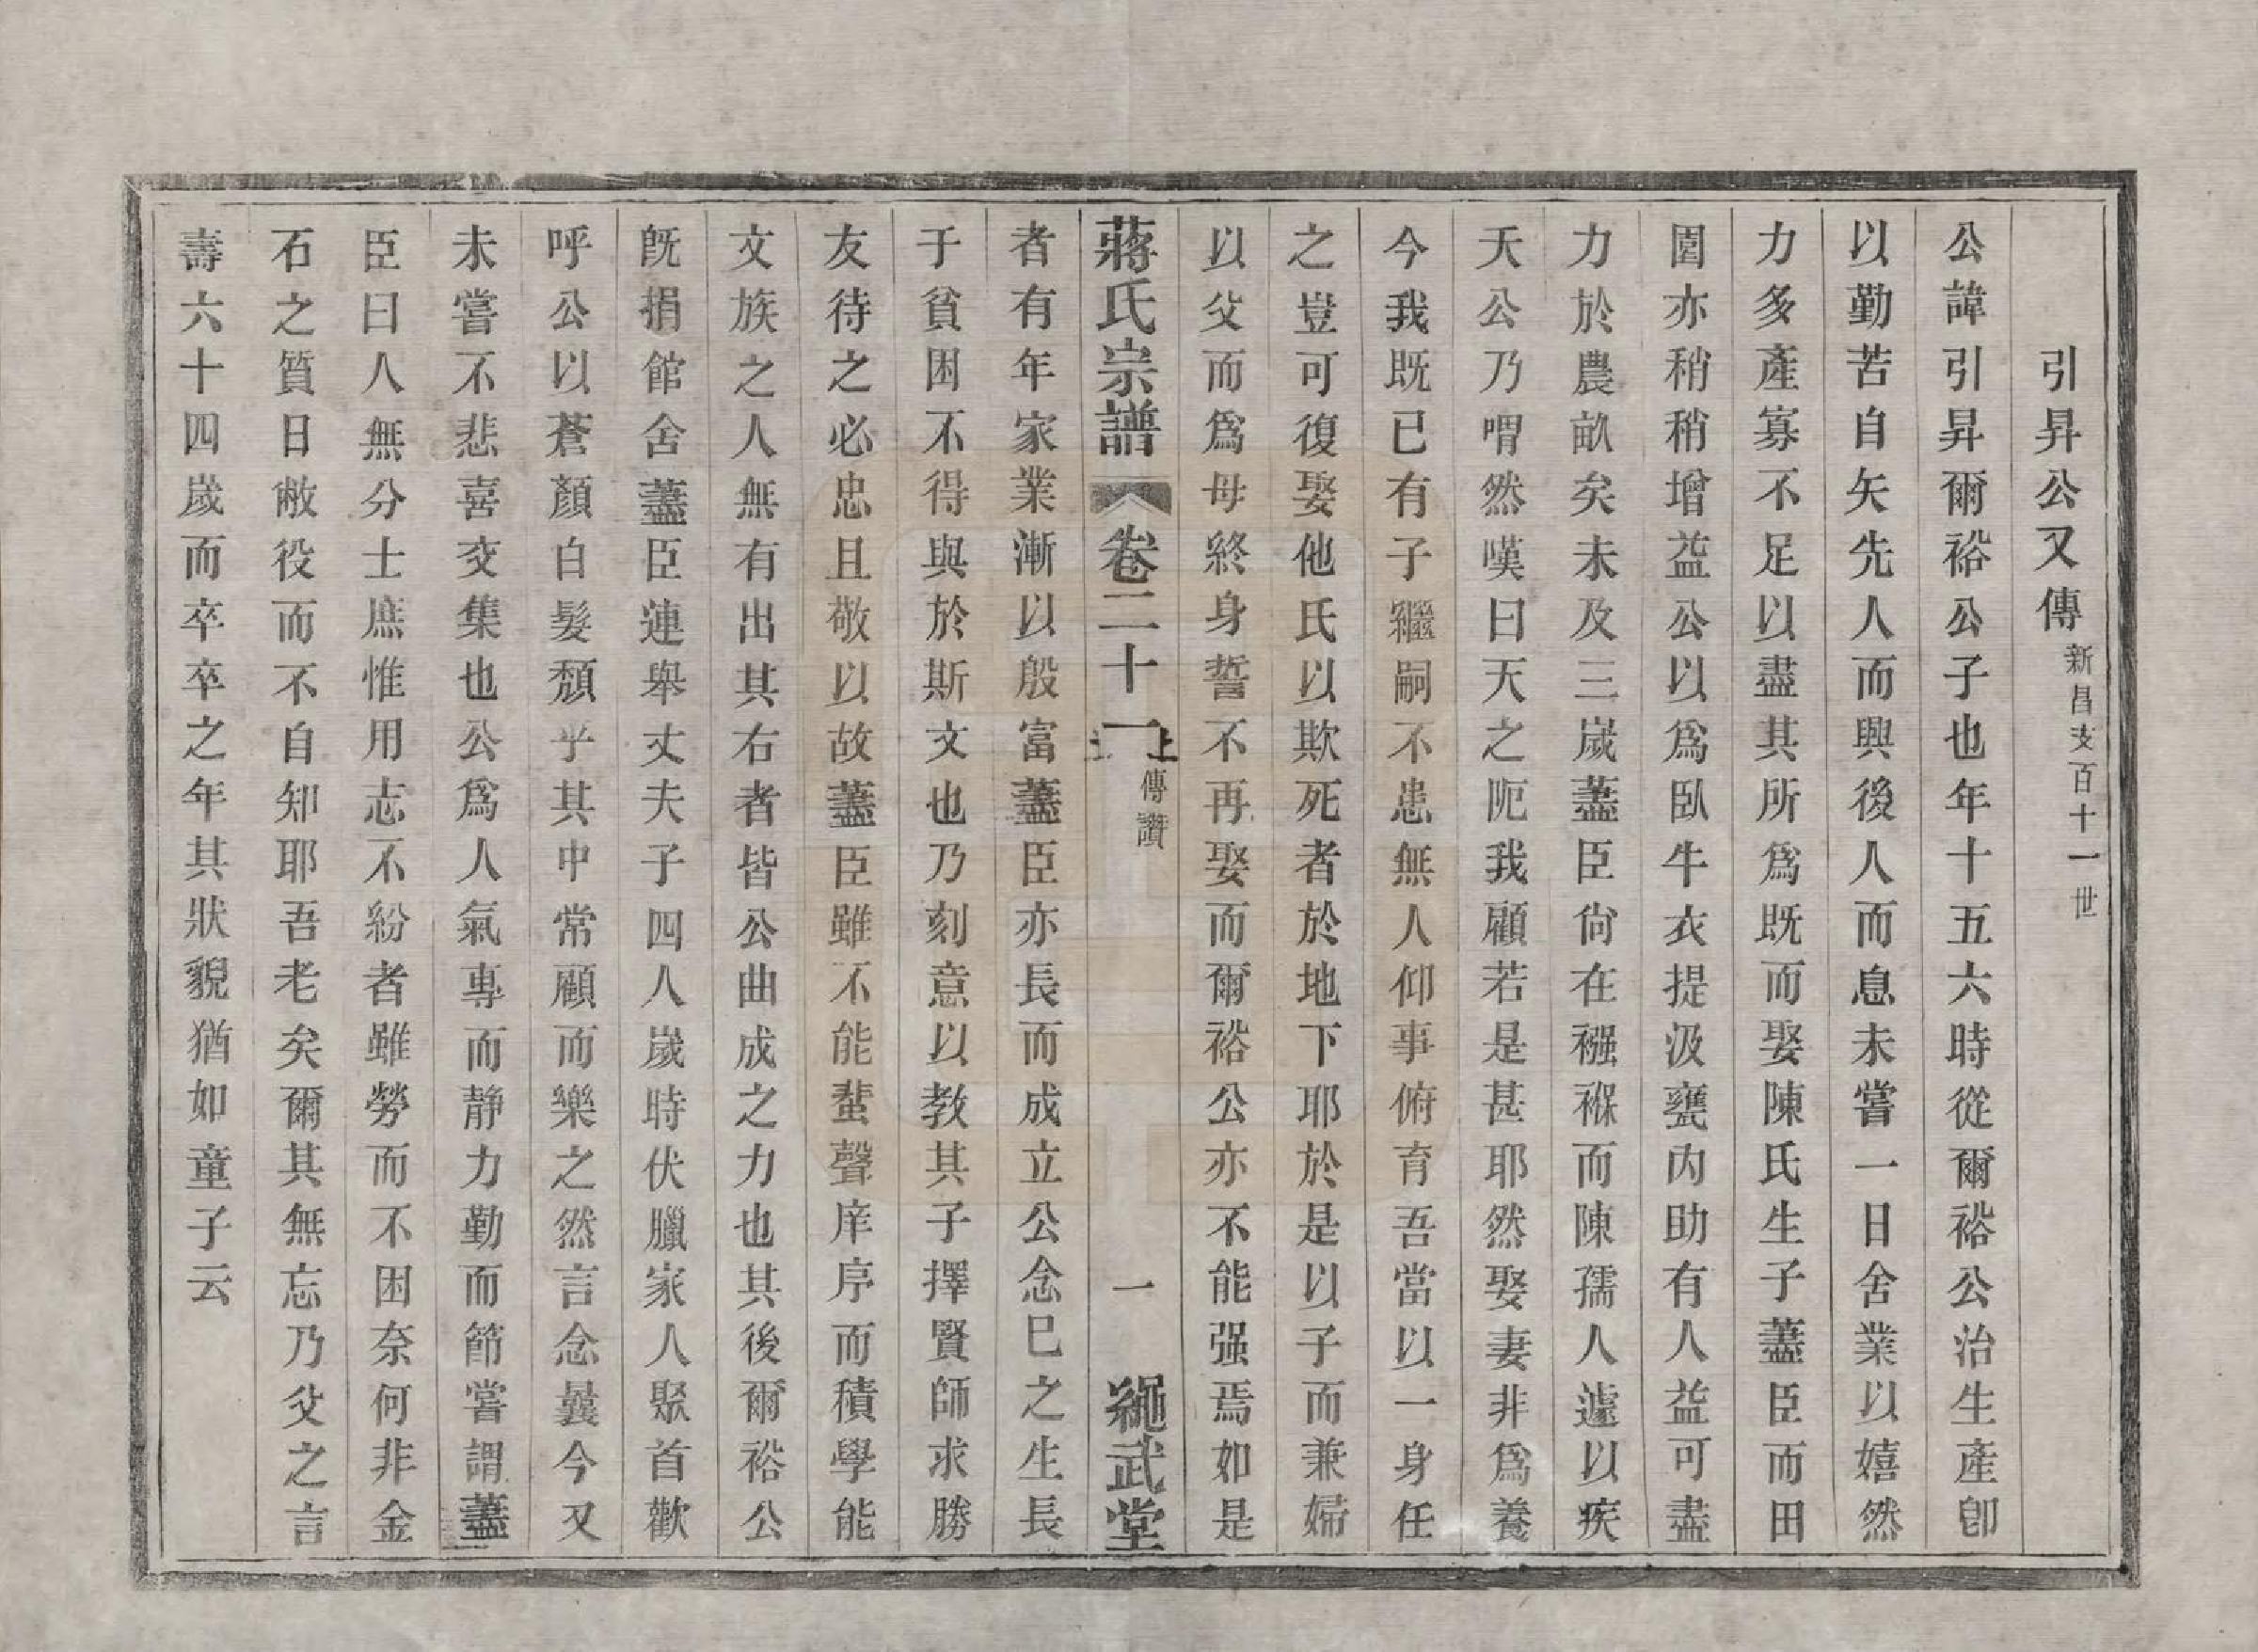 引昇公又傳 新昌支百十一世
公諱引昇爾裕公子也年十五六時從爾裕公治生產卽
以勤苦自矢先人而興後人而息未嘗一日舍業以嬉然
力多產寡不足以盡其所爲既而娶陳氏生子藎臣而田
園亦稍稍增益公以爲臥牛衣提汲甕內助有人益可盡
力於農畝矣未及三歲藎臣尙在襁褓而陳孺人遽以疾
夭公乃喟然嘆曰天之阨我顧若是甚耶然娶妻非爲養
今我既已有子繼嗣不患無人仰事俯育吾當以一身任
之豈可復娶他氏以欺死者於地下耶於是以子而兼婦
以父而爲母終身誓不再娶而爾裕公亦不能强焉如是
蔣氏宗譜 卷二十一上 傳讚 一 繩武堂
者有年家業漸以殷富藎臣亦長而成立公念巳之生長
于貧困不得與於斯文也乃刻意以教其子擇賢師求勝
友待之必忠且敬以故藎臣雖不能蜚聲庠序而積學能
文族之人無有出其右者皆公曲成之力也其後爾裕公
既捐館舍藎臣連舉丈夫子四人歲時伏臘家人聚首歡
呼公以蒼顏白髮頹乎其中常顧而樂之然言念曩今又
未嘗不悲喜交集也公爲人氣專而靜力勤而節嘗謂藎
臣曰人無分士庶惟用志不紛者雖勞而不困奈何非金
石之質日敝役而不自知耶吾老矣爾其無忘乃父之言
壽六十四歲而卒卒之年其狀貌猶如童子云